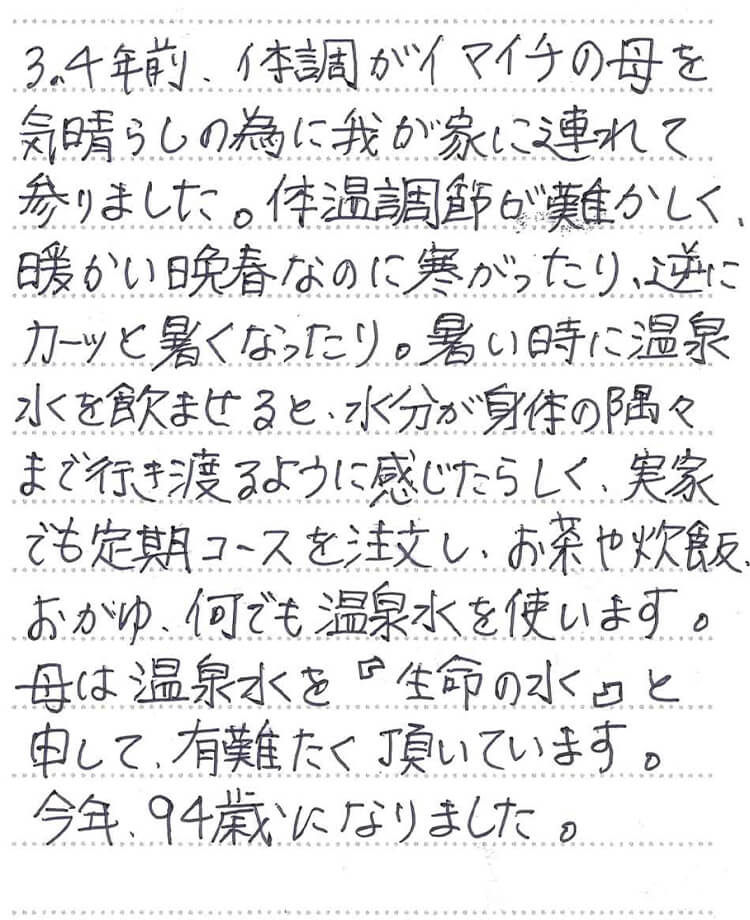 3.4年前、体調がイマイチの母を
気晴らしの為に我が家に連れて
参りました。体温調節が難かしく、
暖かい晩春なのに寒がったり、逆に
カーッと暑くなったり。暑い時に温泉
水を飲ませると、水分が身体の隅々
まで行き渡るように感じたらしく、実家
でも定期コースを注文し、お茶や炊飯、
おがゆ、何でも温泉水を使います。
母は温泉水を『生命の水』と
申して、有難たく頂いています。
今年、94歳になりました。